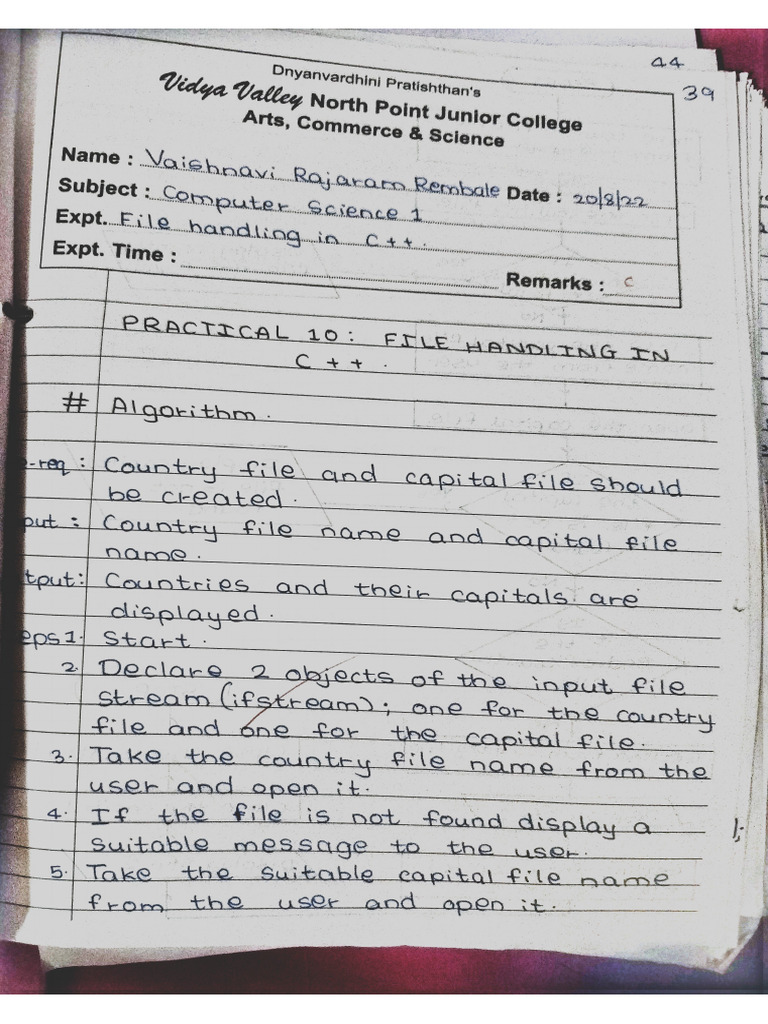 44
39
Dnyanvardhini Pratishthan's
Vidya Valley North Point Junior College
Arts, Commerce & Science
Name : Vaishnavi Rajaram Rembale Date : 20/8/22
Subject : Computer Science 1
Expt. File handling in C++.
Expt. Time :
Remarks : C
PRACTICAL 10: FILE HANDLING IN
C++.
# Algorithm.
-req : Country file and capital file should
be created.
put : Country file name and capital file
name.
tput: Countries and their capitals are
displayed.
eps 1. Start.
2. Declare 2 objects of the input file
stream (ifstream); one for the country
file and one for the capital file.
3. Take the country file name from the
user and open it.
4. If the file is not found display a
suitable message to the user.
5. Take the suitable capital file name
from the user and open it.